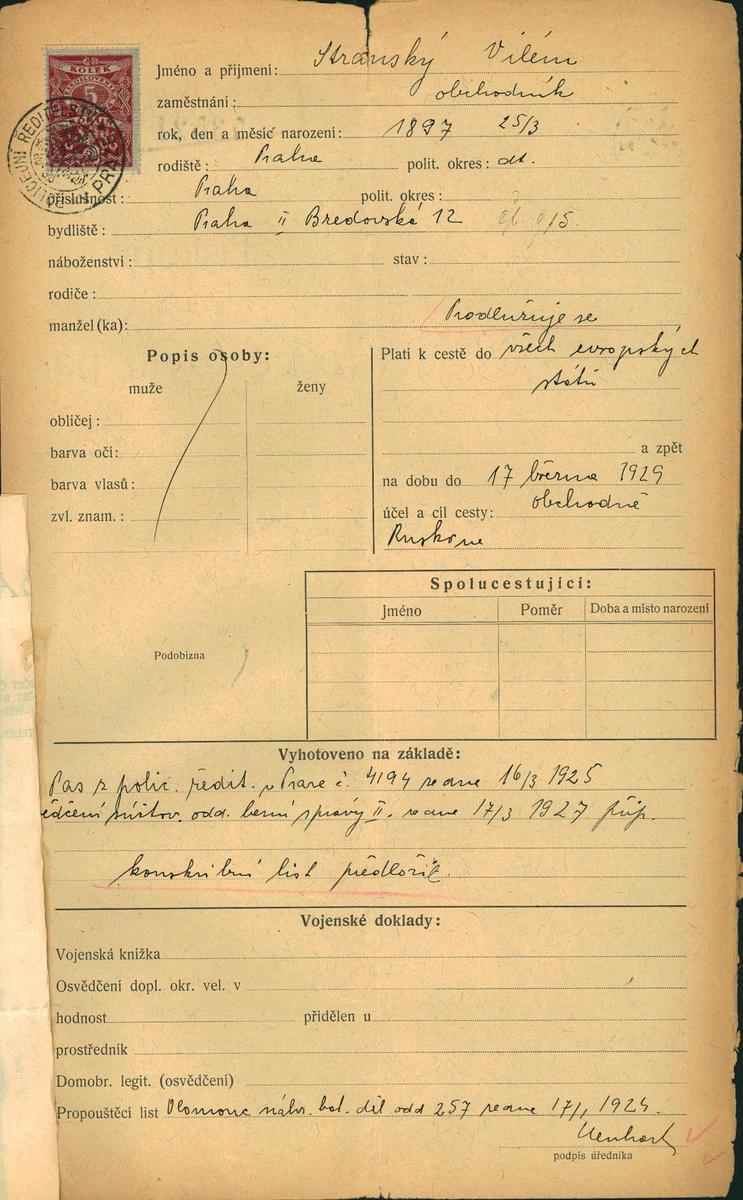 KOLEK
5
POLICEJNÍ ŘEDITELSTVÍ V PRAZE
Jméno a příjmení: Stránský Vilém
zaměstnání: obchodník
rok, den a měsíc narození: 1897 25/3
rodiště: Praha polit. okres: dt.
příslušnost: Praha polit. okres:
bydliště: Praha II Bredovská 12
náboženství: stav:
rodiče:
manžel (ka): Prodlužuje se
Popis osoby:
muže ženy
obličej:
barva očí:
barva vlasů:
zvl. znam.:
Platí k cestě do všech evropských
států
a zpět
na dobu do 17 března 1929
účel a cíl cesty: obchodně
Rusko ne
Spolucestující:
Jméno Poměr Doba a místo narození
Podobizna
Vyhotoveno na základě:
Pas z polic. ředit. v Praze č. 4194 ze dne 16/3 1925
ědčení zúčtov. odd. berní správy II. ze dne 17/3 1927 příp.
konskribní list předložil.
Vojenské doklady:
Vojenská knížka
Osvědčení dopl. okr. vel. v
hodnost přidělen u
prostředník
Domobr. legit. (osvědčení)
Propouštěcí list Olomouc náhr. bat. děl odd 257 ze dne 17/1 1924.
podpis úředníka